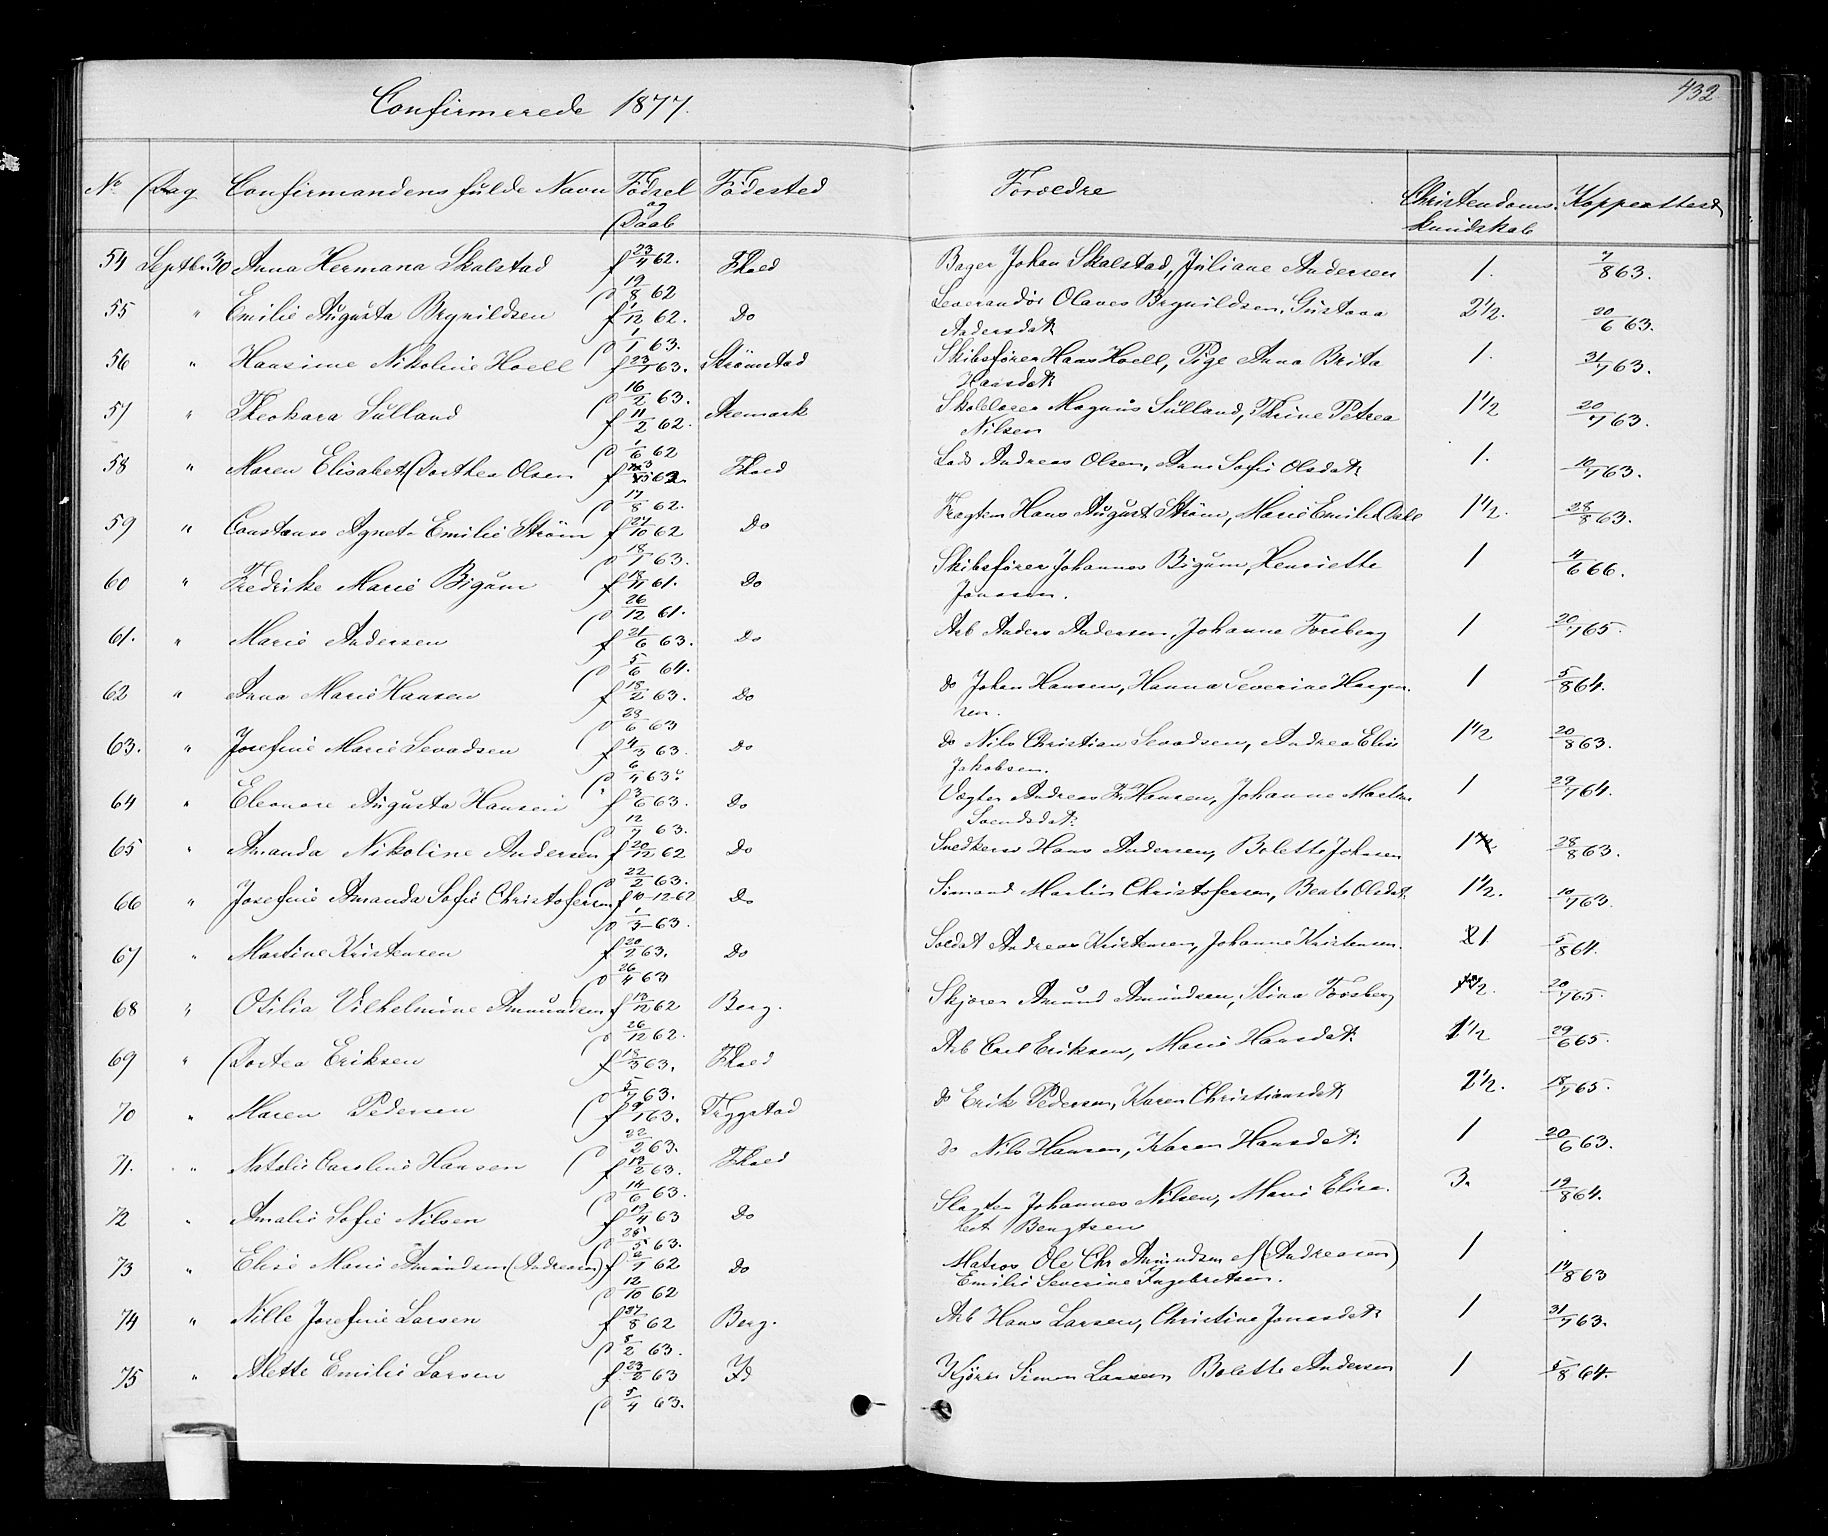 Confirmerede 1877.
432
No Dag Confirmandens fulde Navn Fødsel og Daab Fødested Forældre Christendoms kundskab Koppeattest
54 Septbr 30 Anna Hermana Skalstad f 23/4 62. D 19/8 62 Fhald Bager Johan Skalstad, Juliane Andersen 1. 7/8 63.
55 " Emilie Augusta Brynildsen f 1/12 62. D 1/1 63. Do Leverandør Olaves Brynildsen, Gustava Andersdatr 2 1/2. 20/6 63.
56 " Hansine Nikoline Hoell f 23/1 63. D 16/2 63. Strømstad Skibsfører Hans Hoell, Pige Anna Brita Hansdatr 1. 31/7 63.
57 " Theokara Sulland f 11/2 62. D 1/6 62 Aremark Skolelærer Magnus Sulland, Thrine Petrea Nilsen 1 1/2 20/7 63.
58 " Maren Elisabet Dorthea Olsen D 17/8 62. Fhald Lods Andreas Olsen, Anne Sofie Olsdatr 1. 10/7 63.
59 " Constanse Agnete Emilie Strøm f 27/10 62 D 18/1 63. Do Hans August Strøm, Marie Emilie Dahl 1 1/2. 28/8 63.
60 " Fredrike Marie Bigum f 18/11 61. D 26/12 61. Do Skibsfører Johannes Bigum, Henriette Jonasen. 1 4/6 66.
61. " Marie Andersen f 21/6 63. D 5/6 64. Do Arb Anders Andersen, Johanne Forsberg 1 20/7 65.
62 " Anna Marie Hansen f 18/2 63. D 28/6 63 Do do Johan Hansen, Hanna Severine Haagensen. 1 5/8 64.
63. " Josefine Marie Sevadsen f 4/3 63. D 6/4 63. Do do Nils Christian Sevadsen, Andrea Elise Jakobsen. 1 1/2 20/8 63.
64 " Eleonore Augusta Hansen f 3/6 63. D 12/7 63. Do Vægter Andreas Hansen, Johanne Martine Svendsdatr. 1 29/7 64.
65 " Amanda Nikoline Andersen f 20/12 62 D 22/2 63. Do Snedkersv Hans Andersen, Bolette Johnsen 28/8 63.
66 " Josefine Amanda Sofie Christofersen f 10-12-62 D 1/3-63. Do Sømand Martin Christofersen, Beate Olsdatr. 1 1/2. 10/7 63.
67 " Martine Kristensen f 20/2 63. D 26/4 63 Do Soldat Andreas Kristensen, Johanne Kristensen. 1 5/8 64.
68 " Otilia Vilhelmine Amundsen f 13/12 62 D 26/12 62. Berg. Skjører Amund Amundsen, Stina Forsberg 20/7 65.
69 " Dortea Eriksen f 18/3 63. D 5/7 63. Fhald Arb Carl Eriksen, Marie Hansdatr. 1 1/2 29/6 65.
70 " Maren Pedersen f 9/1 63. D 22/2 63. Trygstad do Erik Pedersen, Karen Christiansdatr 2 1/2. 18/7 65.
71. " Natalie Caroline Hansen f 13/2 63. D 14/6 63. Fhald do Nils Hansen, Karen Hansdatr. 1 20/6 63.
72 " Amalie Sofie Nilsen f 19/4 63 D 25/5 63. Do Slagter Johannes Nilsen, Marie Elisabet Bengtsen 3. 19/8 64.
73 " Elise Marie Amundsen (Andreasen) D 12/10 62 Do Matros Ole Chr Amundsen (Andreasen) Emilie Severine Ingebretsen. 1 14/8 63
74 " Nille Josefine Larsen f 27/8 62 D 8/2 63. Berg. Arb Hans Larsen, Christine Jonasdatr 1 31/7 63.
75 " Alette Emilie Larsen f 23/2 63 D 5/4 63. Id Kjører Simon Larsen Bolette Andersen 1 5/8 64.